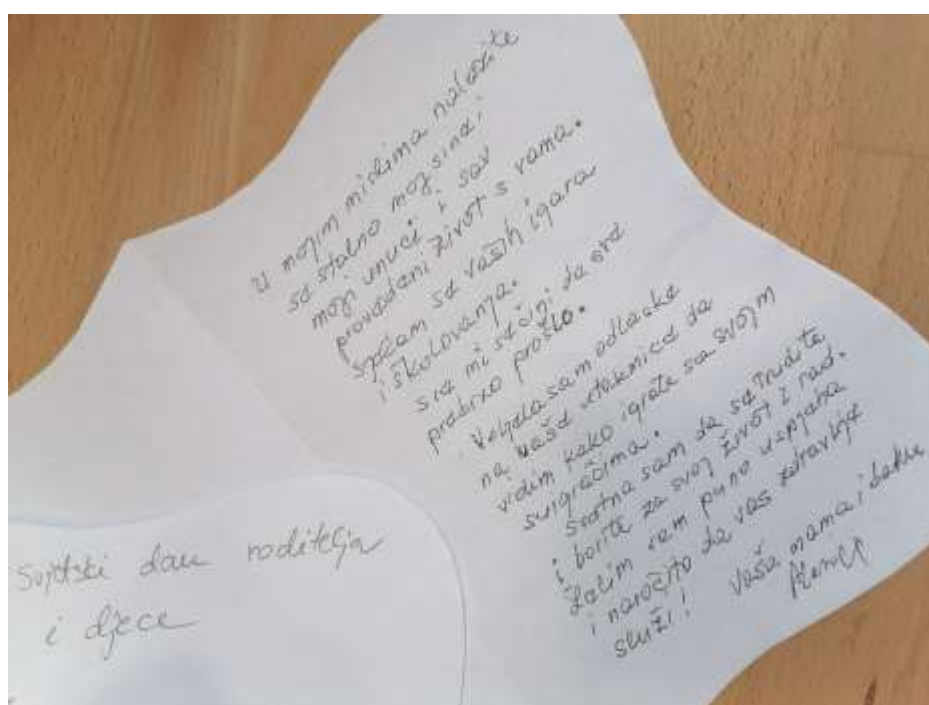 U mojim mislima nalazite
se stalno moji sinovi
moji unuci i sav
provedeni život s vama.
Sjećam se vaših igara
i školovanja.
Sve mi se čini da sve
prebrzo prošlo.
Voljela sam odlaske
na vaše utakmice da
vidim kako igrate sa svojim
suigračima.
Sretna sam da se trudite
i borite za svoj život i rad.
Želim vam puno uspjeha
i naročito da vas zdravlje
služi! Vaša mama i baka
Svjetski dan roditelja
i djece